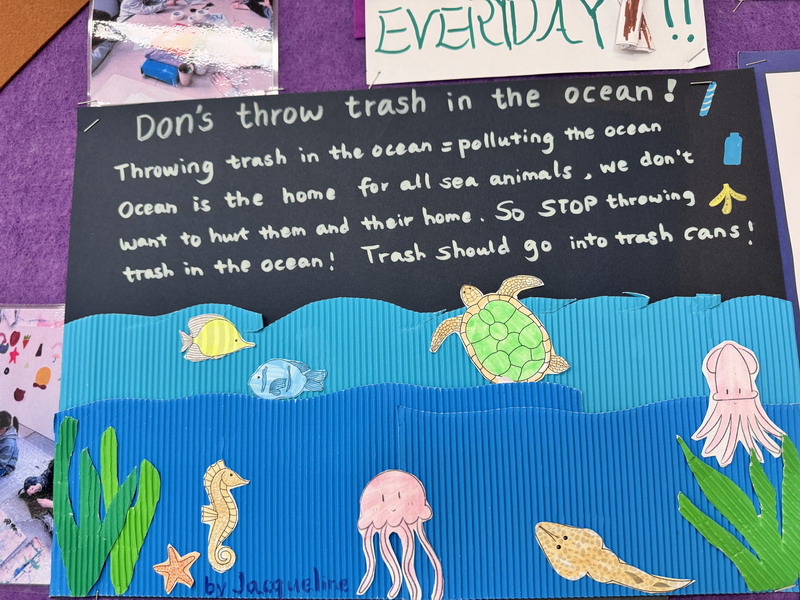 EVERYDAY !!
Don's throw trash in the ocean!
Throwing trash in the ocean = polluting the ocean
Ocean is the home for all sea animals, we don't
want to hurt them and their home. So STOP throwing
trash in the ocean! Trash should go into trash cans!
by Jacqueline